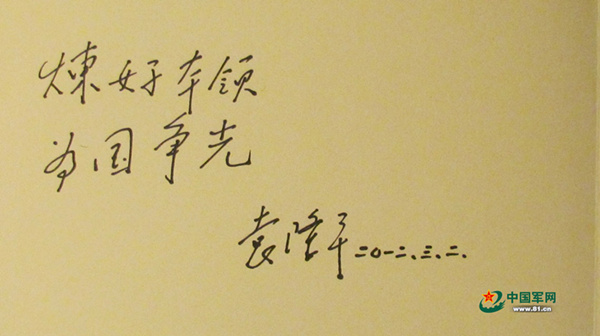 煉好本领
为国争光
袁隆平 二〇一二.三.二.
中国军网
www.81.cn